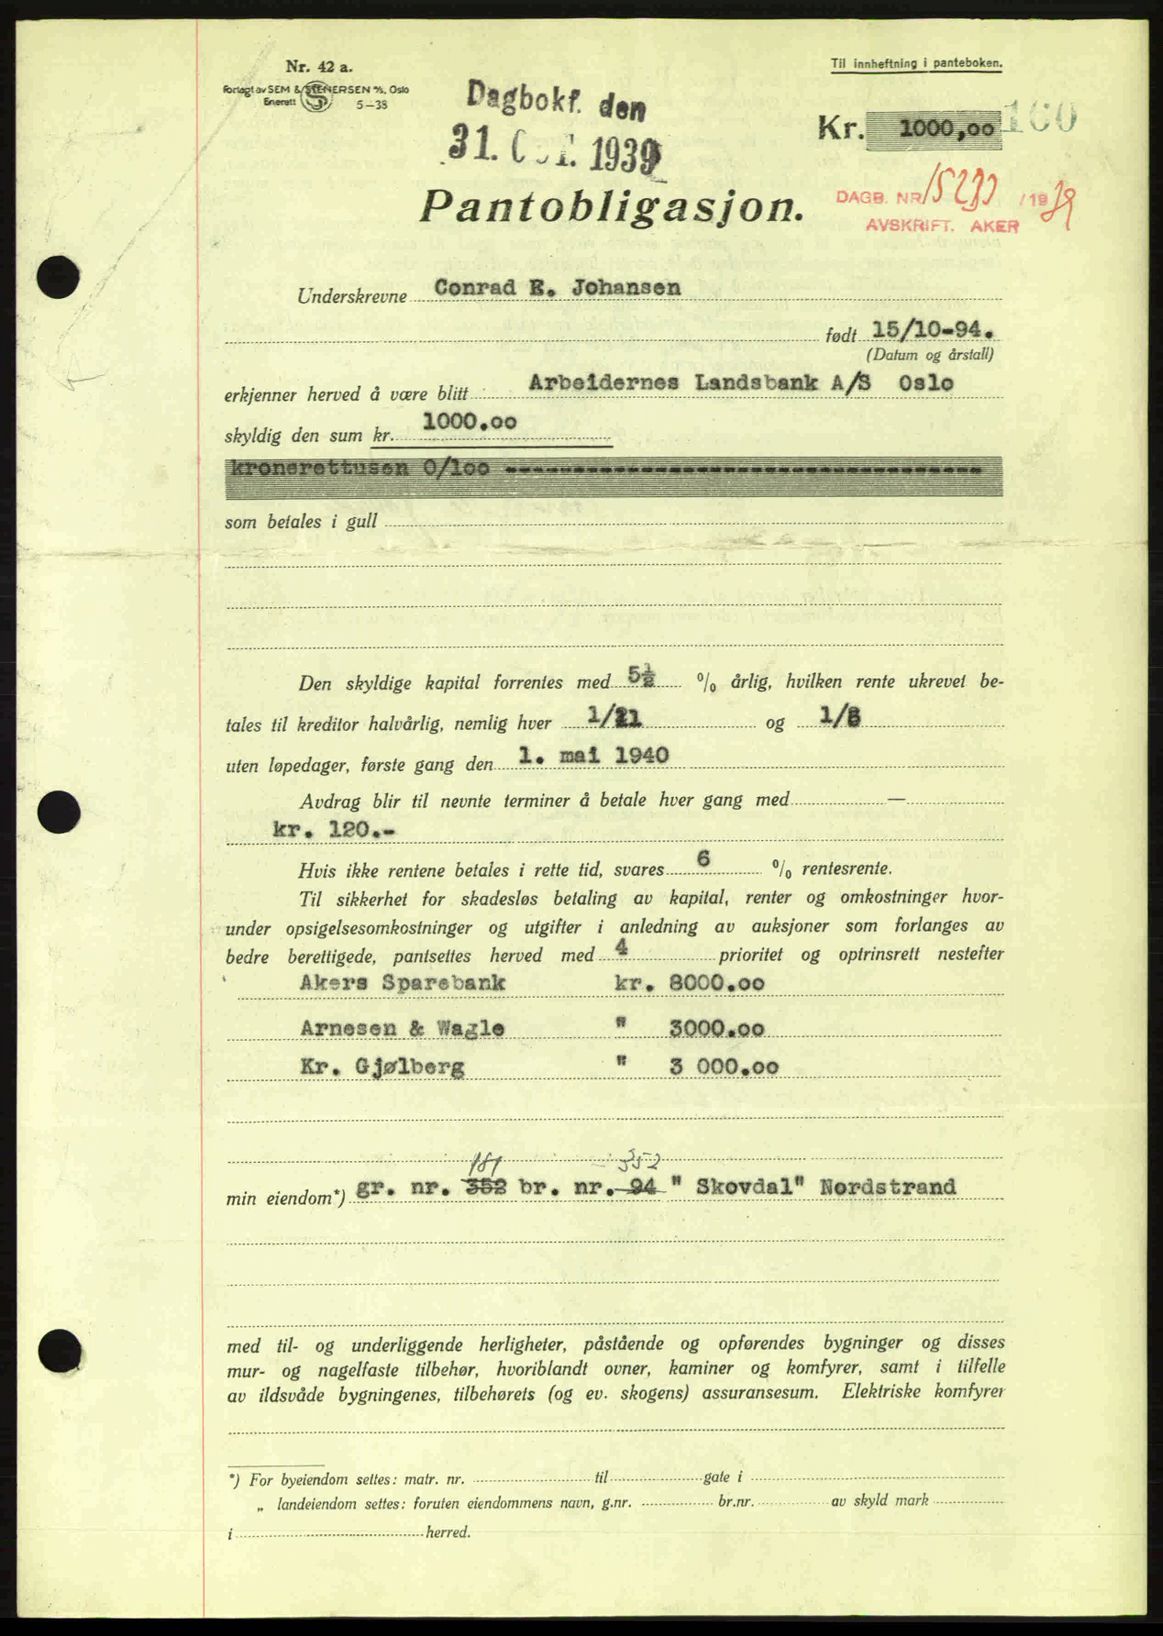 Nr. 42 a.
Forlagt av SEM & STENERSEN A/S, Oslo
Enerett 5-38
Til innheftning i panteboken.
Dagbokf. den
31. 1939
Kr. 1000,oo
160
DAGB. NR. /19 39
AVSKRIFT. AKER
Pantobligasjon.
Underskrevne Conrad E. Johansen
født 15/10-94.
(Datum og årstall)
erkjenner herved å være blitt Arbeidernes Landsbank A/S Oslo
skyldig den sum kr. 1000.oo
kronerettusen 0/1oo -----------------------------------
som betales i gull
Den skyldige kapital forrentes med 5½ % årlig, hvilken rente ukrevet be-
tales til kreditor halvårlig, nemlig hver 1/11 og 1/5
uten løpedager, første gang den 1. mai 1940
Avdrag blir til nevnte terminer å betale hver gang med —
kr. 120.-
Hvis ikke rentene betales i rette tid, svares 6 % rentesrente.
Til sikkerhet for skadesløs betaling av kapital, renter og omkostninger hvor-
under opsigelsesomkostninger og utgifter i anledning av auksjoner som forlanges av
bedre berettigede, pantsettes herved med 4 prioritet og optrinsrett nestefter
Akers Sparebank kr. 8000.oo
Arnesen & Wagle " 3000.oo
Kr. Gjølberg " 3 000.oo
181 352
min eiendom*) gr. nr. 352 br. nr. 94 " Skovdal" Nordstrand
med til- og underliggende herligheter, påstående og opførendes bygninger og disses
mur- og nagelfaste tilbehør, hvoriblandt ovner, kaminer og komfyrer, samt i tilfelle
av ildsvåde bygningenes, tilbehørets (og ev. skogens) assuransesum. Elektriske komfyrer
*) For byeiendom settes: matr. nr. til gate i
„ landeiendom settes: foruten eiendommens navn, g.nr. br.nr. av skyld mark
i herred.